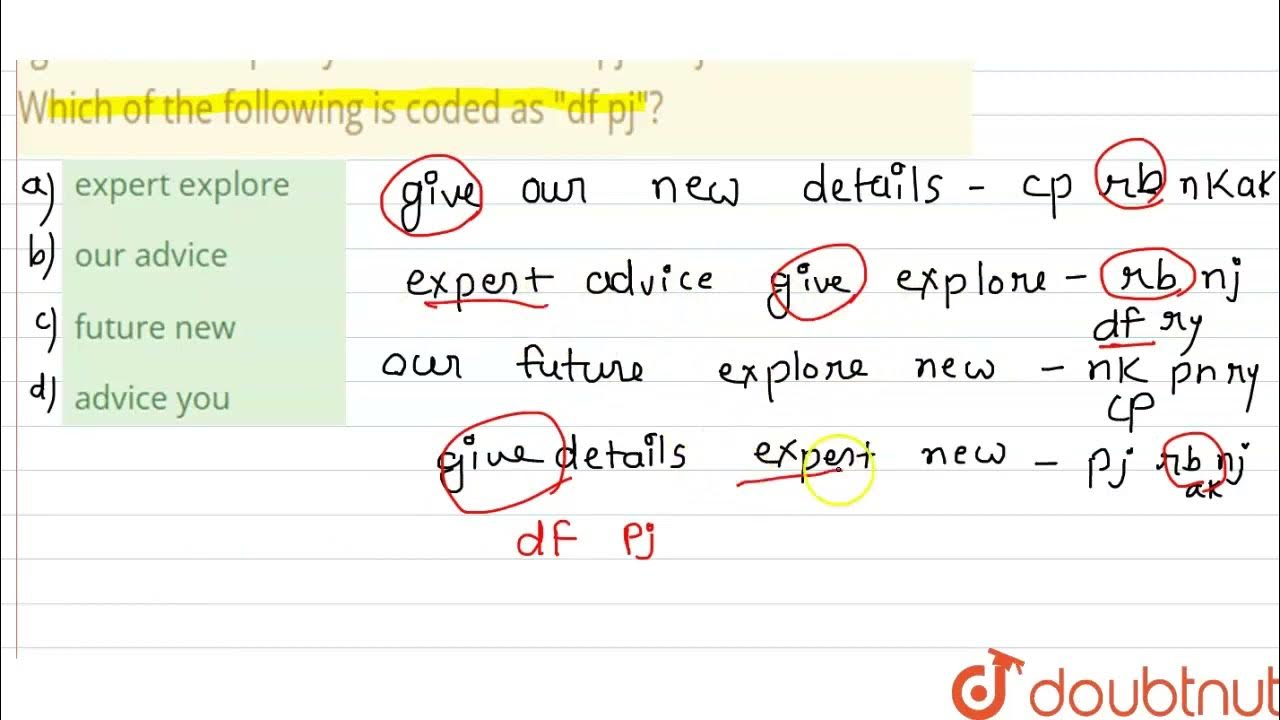 Which of the following is coded as "df pj"?
a) expert explore
b) our advice
c) future new
d) advice you
give our new details - cp rb nk ak
expert advice give explore - rb nj
df ry
our future explore new - nk pn ry
cp
give details expert new - pj rb nj
ak
df pj
doubtnut